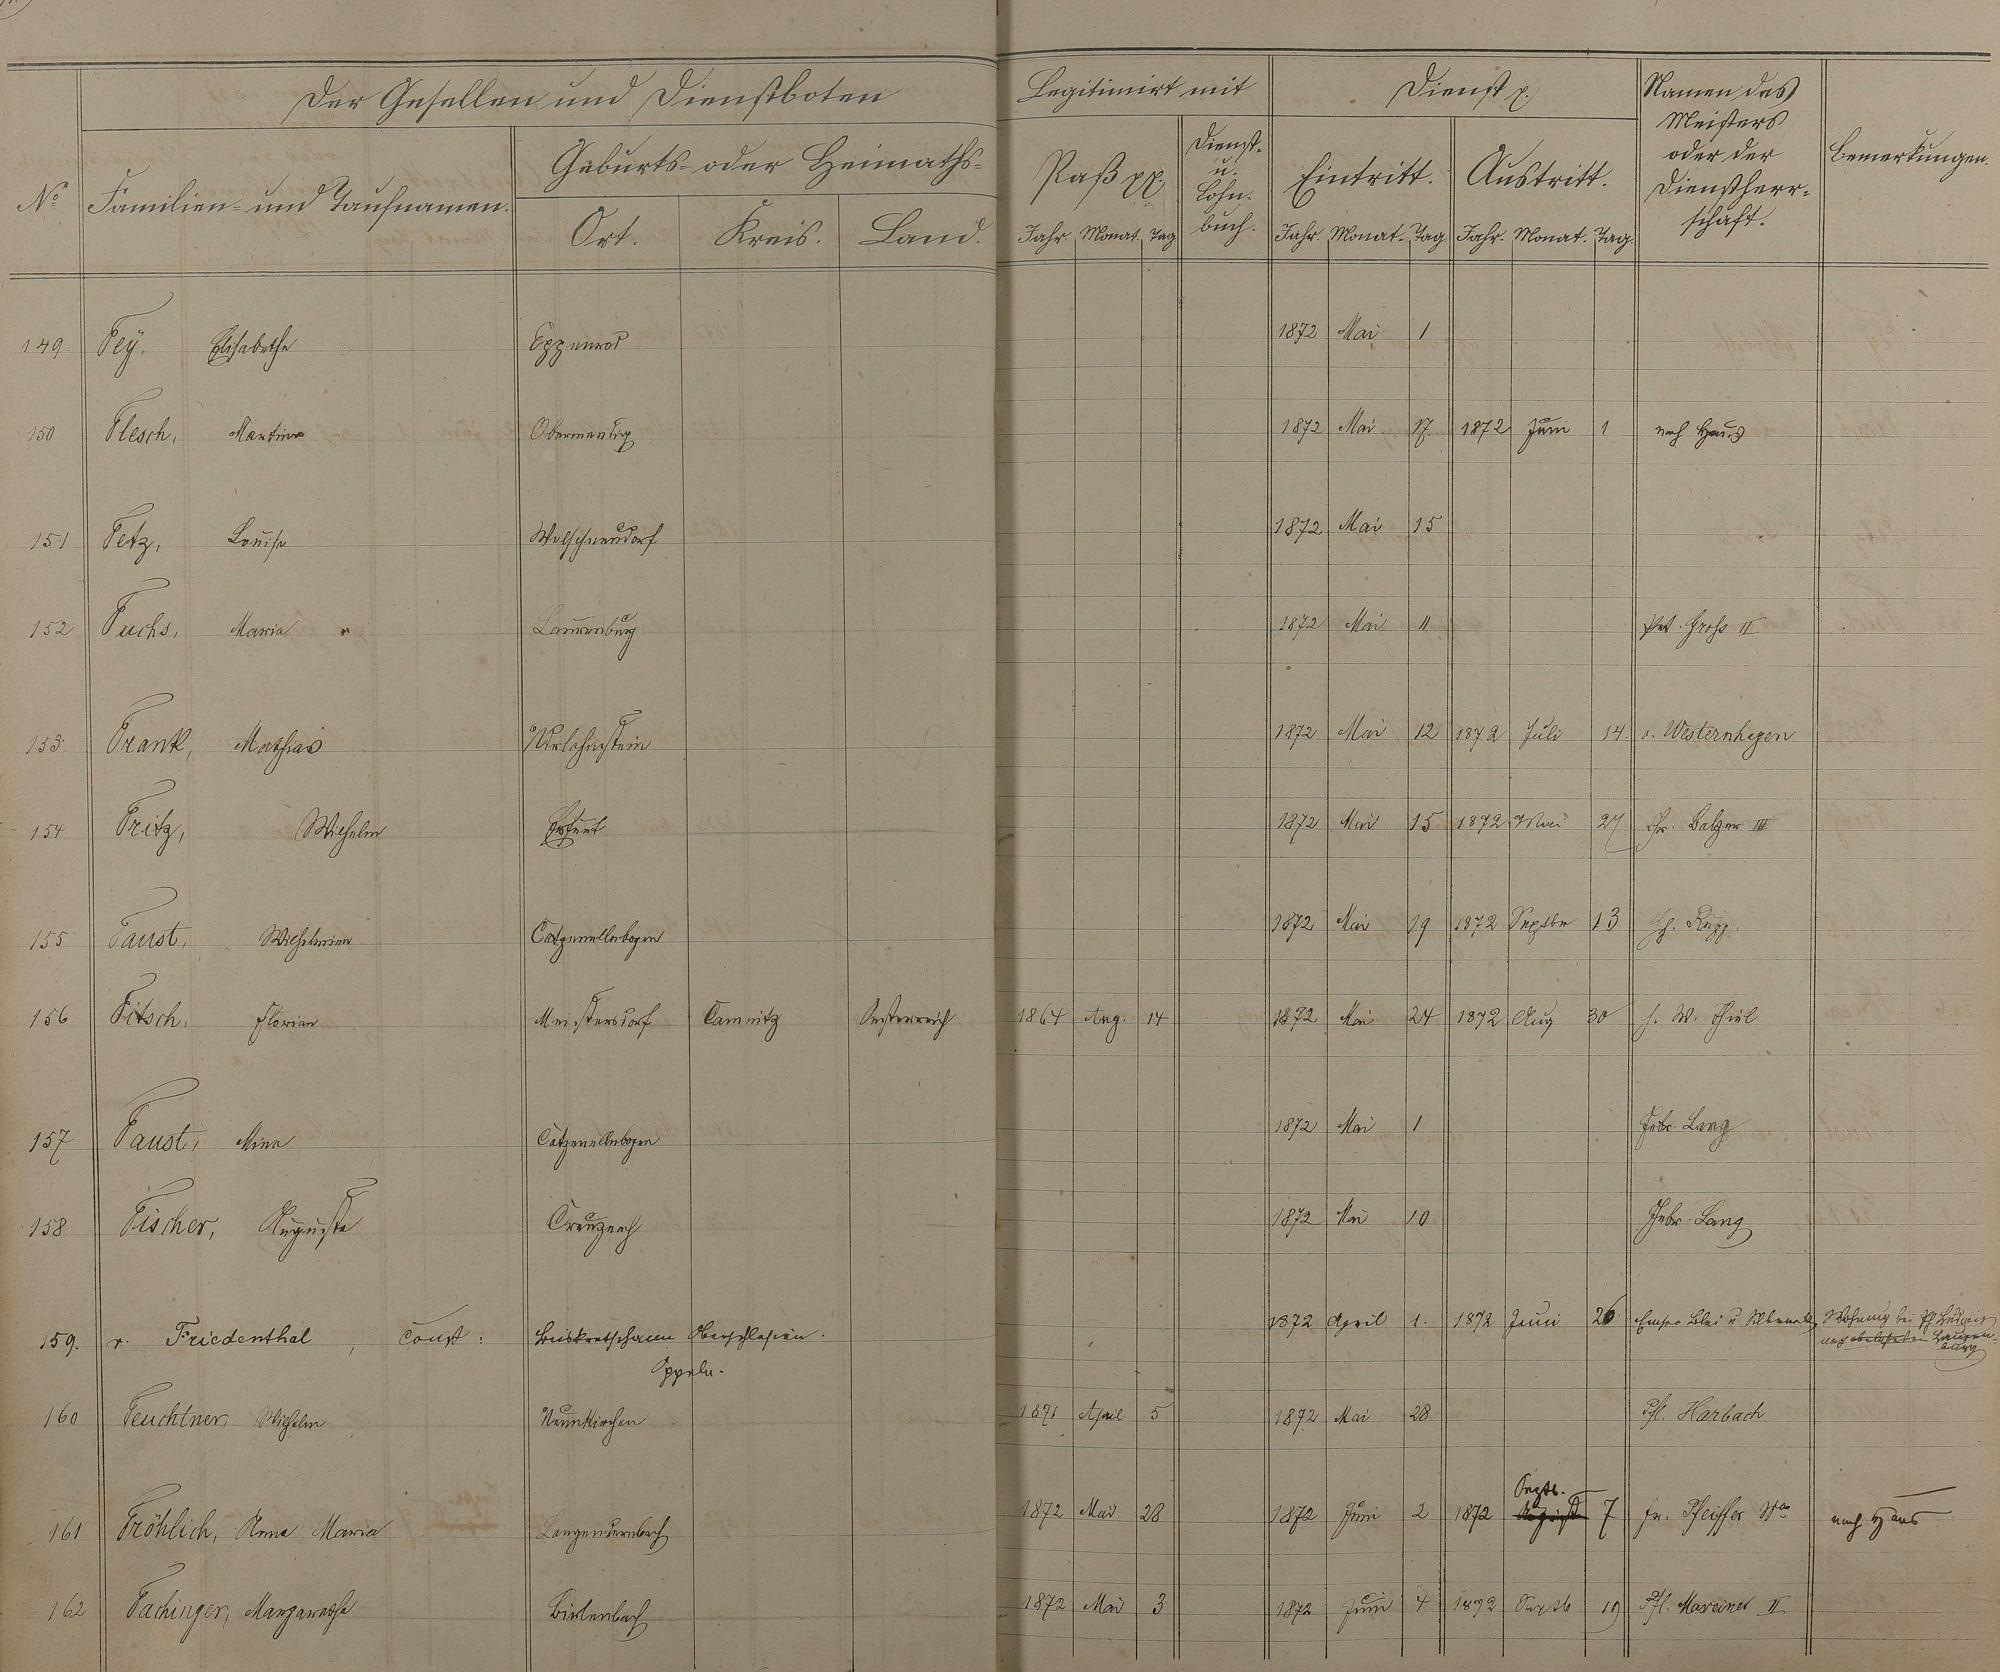 Der Gesellen und Dienstboten
Legitimirt mit
Dienst p.
Namen des
Meisters
oder der
Dienstherr-
schaft.
Bemerkungen.
No
Familien- und Taufnamen.
Geburts- oder Heimaths-
Ort. Kreis. Land.
Paß pp.
Dienst-
u.
Lohn-
buch.
Eintritt. Austritt.
Jahr. Monat. Tag
Jahr. Monat. Tag Jahr. Monat. Tag.
149. Fey, Elisabetha Eppenrod 1872 Mai 1
150 Flesch, Martin Obermendig 1872 Mai 17 1872 Juni 1 nach Haus
151 Fetz, Louise Welschneudorf 1872 Mai 15
152 Fuchs, Maria Laurenburg 1872 Mai 11 Groß II
153 Frank, Mathias 1872 Mai 12 1872 Juli 14. v. Westernhagen
154 Fritz, Wilhelm Erfurt 1872 Mai 15 1872 Mai 27 Chr. Balzer III
155 Faust, Wilhelmine Catzenellenbogen 1872 Mai 19 1872 Septbr 13 Rupp.
156 Fitsch, Florian Meistersdorf Camnitz Oesterreich 1864 Aug. 14 1872 Mai 24 1872 Aug 30 W. Thiel
157 Faust, Mina Catzenellenbogen 1872 Mai 1 Gebr. Lang
158 Fischer, Auguste Creuznach 1872 Mai 10 Gebr. Lang
159. v. Friedenthal, Const: Oberschlesien. 1872 April 1. 1872 Juni 26 Emser Blei u Silberw. Wohnung bei
Oppeln. nach Lauren-
burg
160 Feuchtner, Wilhelm Neunkirchen 1871 April 5 1872 Mai 28 Harbach
Septb.
161 Fröhlich, Anna Maria Langendernbach 1872 Mai 28 1872 Juni 2 1872 August 7 Pfeiffer Wwe nach Haus
162 Fachinger, Margarethe Birlenbach 1872 Mai 3 1872 Juni 4 1872 Septb 19 Maxeiner II